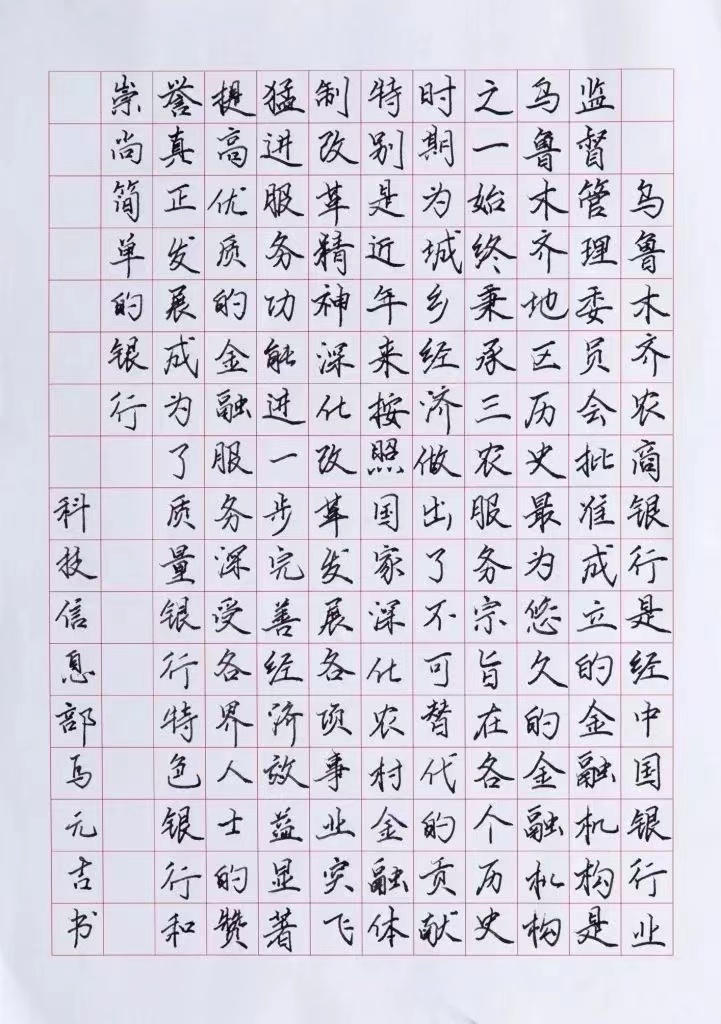 乌鲁木齐农商银行是经中国银行业
监督管理委员会批准成立的金融机构是
乌鲁木齐地区历史最为悠久的金融机构
之一始终秉承三农服务宗旨在各个历史
时期为城乡经济做出了不可替代的贡献
特别是近年来按照国家深化农村金融体
制改革精神深化改革发展各项事业突飞
猛进服务功能进一步完善经济效益显著
提高优质的金融服务深受各界人士的赞
誉真正发展成为了质量银行特色银行和
崇尚简单的银行
科技信息部马元吉书